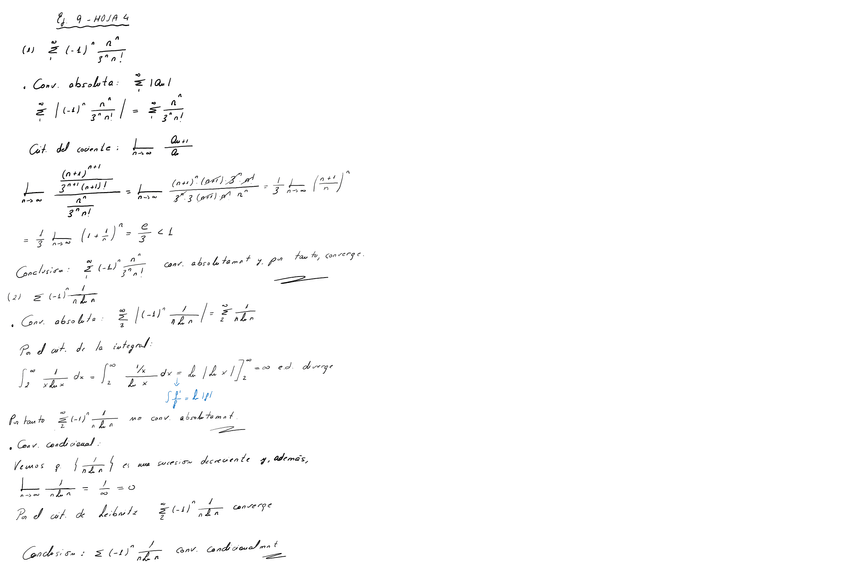 Ej. 9 - HOJA 4
(1) ∑_1^∞ (-1)^n n^n/(3^n n!)
• Conv. absoluta: ∑_1^∞ |a_n|
∑_1^∞ |(-1)^n n^n/(3^n n!)| = ∑_1^∞ n^n/(3^n n!)
Crit. del cociente: L_{n→∞} a_{n+1}/a
L_{n→∞} ((n+1)^{n+1}/(3^{n+1}(n+1)!))/(n^n/(3^n n!)) = L_{n→∞} ((n+1)^n·(n+1)·3^n·n!)/(3^n·3(n+1)n! n^n) = 1/3 L_{n→∞} ((n+1)/n)^n
= 1/3 L_{n→∞} (1+1/n)^n = e/3 < 1
Conclusion: ∑_1^∞ (-1)^n n^n/(3^n n!) conv. absolutamnt y, por tanto, converge.
(2) ∑ (-1)^n 1/(n ln n)
• Conv. absoluta: ∑_2^∞ |(-1)^n 1/(n ln n)| = ∑_2^∞ 1/(n ln n)
Por el crit. de la integral:
∫_2^∞ 1/(x ln x) dx = ∫_2^∞ (1/x)/(ln x) dx = ln |ln x|]_2^∞ = ∞ e.d. diverge
∫ f'/f = ln |f|
Por tanto ∑_2^∞ (-1)^n 1/(n ln n) no conv. absolutamnt
• Conv. condicional:
Vemos q. {1/(n ln n)} es una sucesion decreciente y, además,
L_{n→∞} 1/(n ln n) = 1/∞ = 0
Por el crit. de Leibnitz ∑_2^∞ (-1)^n 1/(n ln n) converge
Conclusion: ∑ (-1)^n 1/(n ln n) conv. condicionalmnt